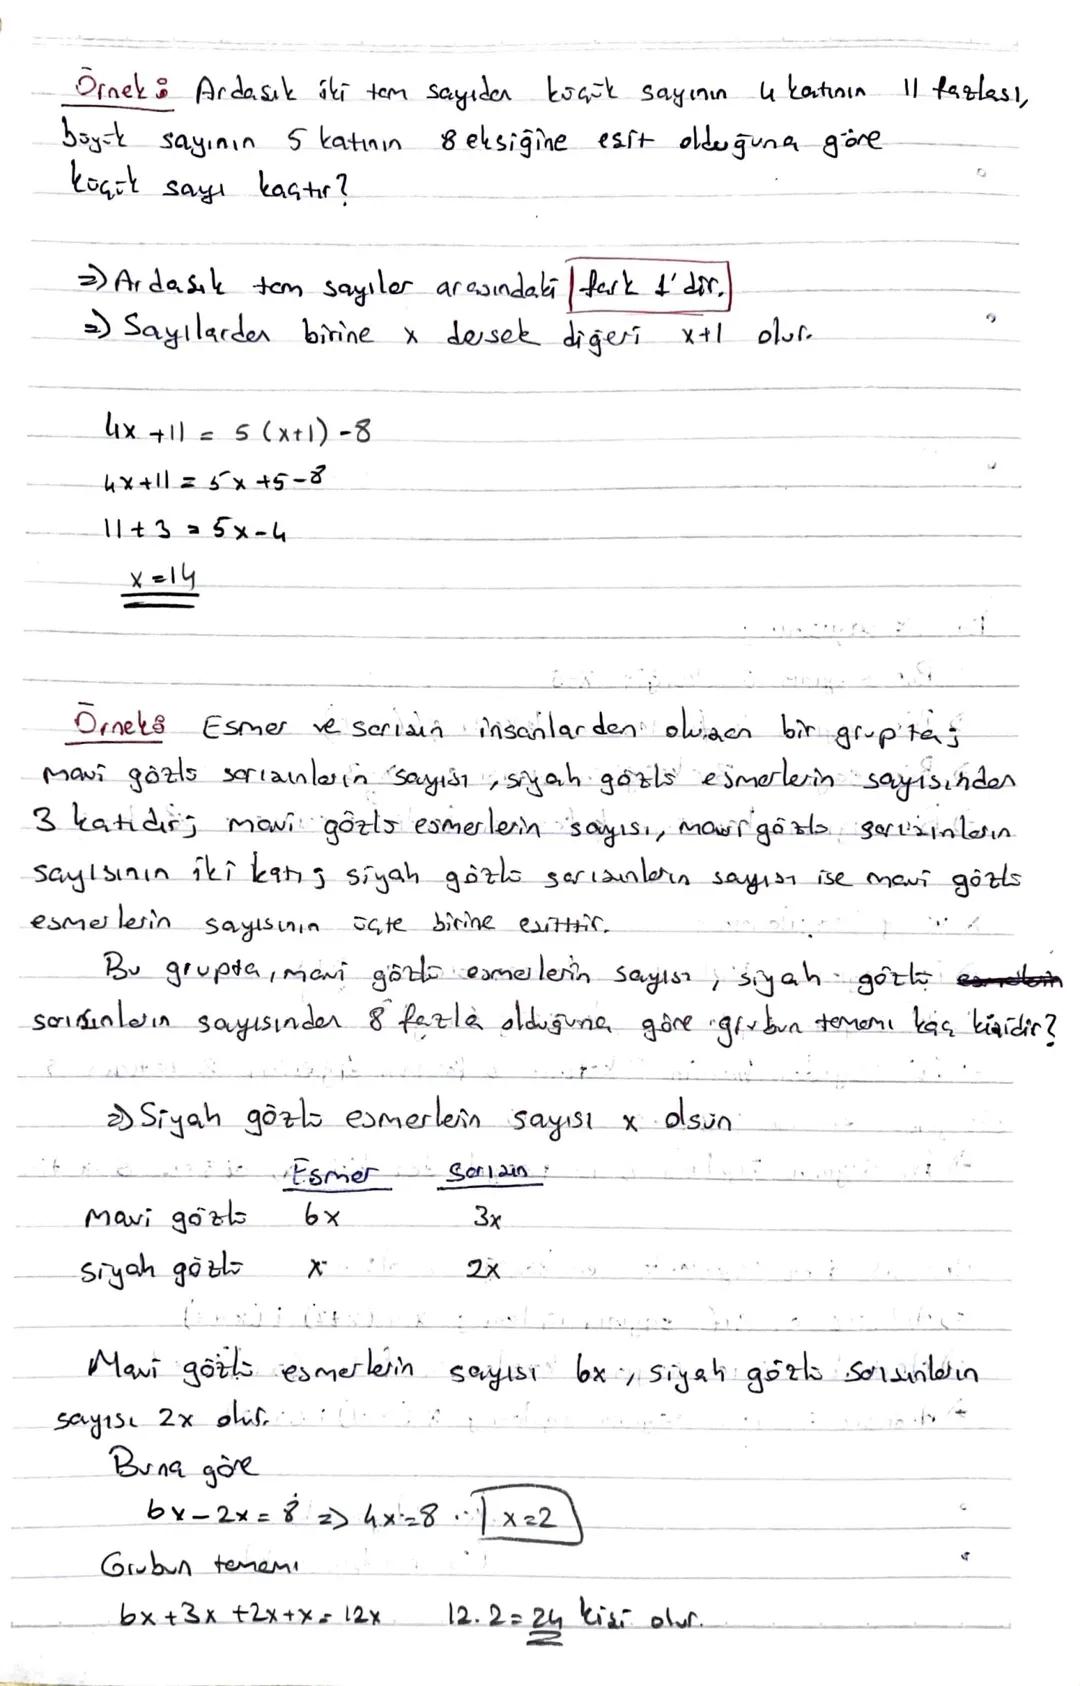 Örnek: Ardaşık iki tam sayıdan küçük sayının 4 katının 11 fazlası,
büyük sayının 5 katının 8 eksiğine eşit olduğuna göre
küçük sayı kaçtır?
⇒) Ardaşık tam sayılar arasındaki fark 1'dir.
⇒) Sayılardan birine x dersek diğeri x+1 olur.
4x+11 = 5(x+1)-8
4x+11 = 5x+5-8
11+3 = 5x-4
x=14
Örnek: Esmer ve sarışın insanlardan oluşan bir grup'ta;
mavi gözlü sarışınların sayısı, siyah gözlü esmerlerin sayısından
3 katıdır; mavi gözlü esmerlerin sayısı, mavi gözlü sarışınların
sayısının iki katı; siyah gözlü sarışınların sayısı ise mavi gözlü
esmerlerin sayısının üçte birine eşittir.
Bu grupta, mavi gözlü esmerlerin sayısı, siyah gözlü
sarışınların sayısından 8 fazla olduğuna göre grubun tamamı kaç kişidir?
⇒) Siyah gözlü esmerlerin sayısı x olsun
Esmer Sarışın
Mavi gözlü 6x 3x
Siyah gözlü x 2x
Mavi gözlü esmerlerin sayısı 6x, siyah gözlü sarışınların
sayısı 2x olur.
Buna göre
6x-2x=8 ⇒ 4x=8 x=2
Grubun tamamı
6x+3x+2x+x=12x 12.2=24 kişi olur.